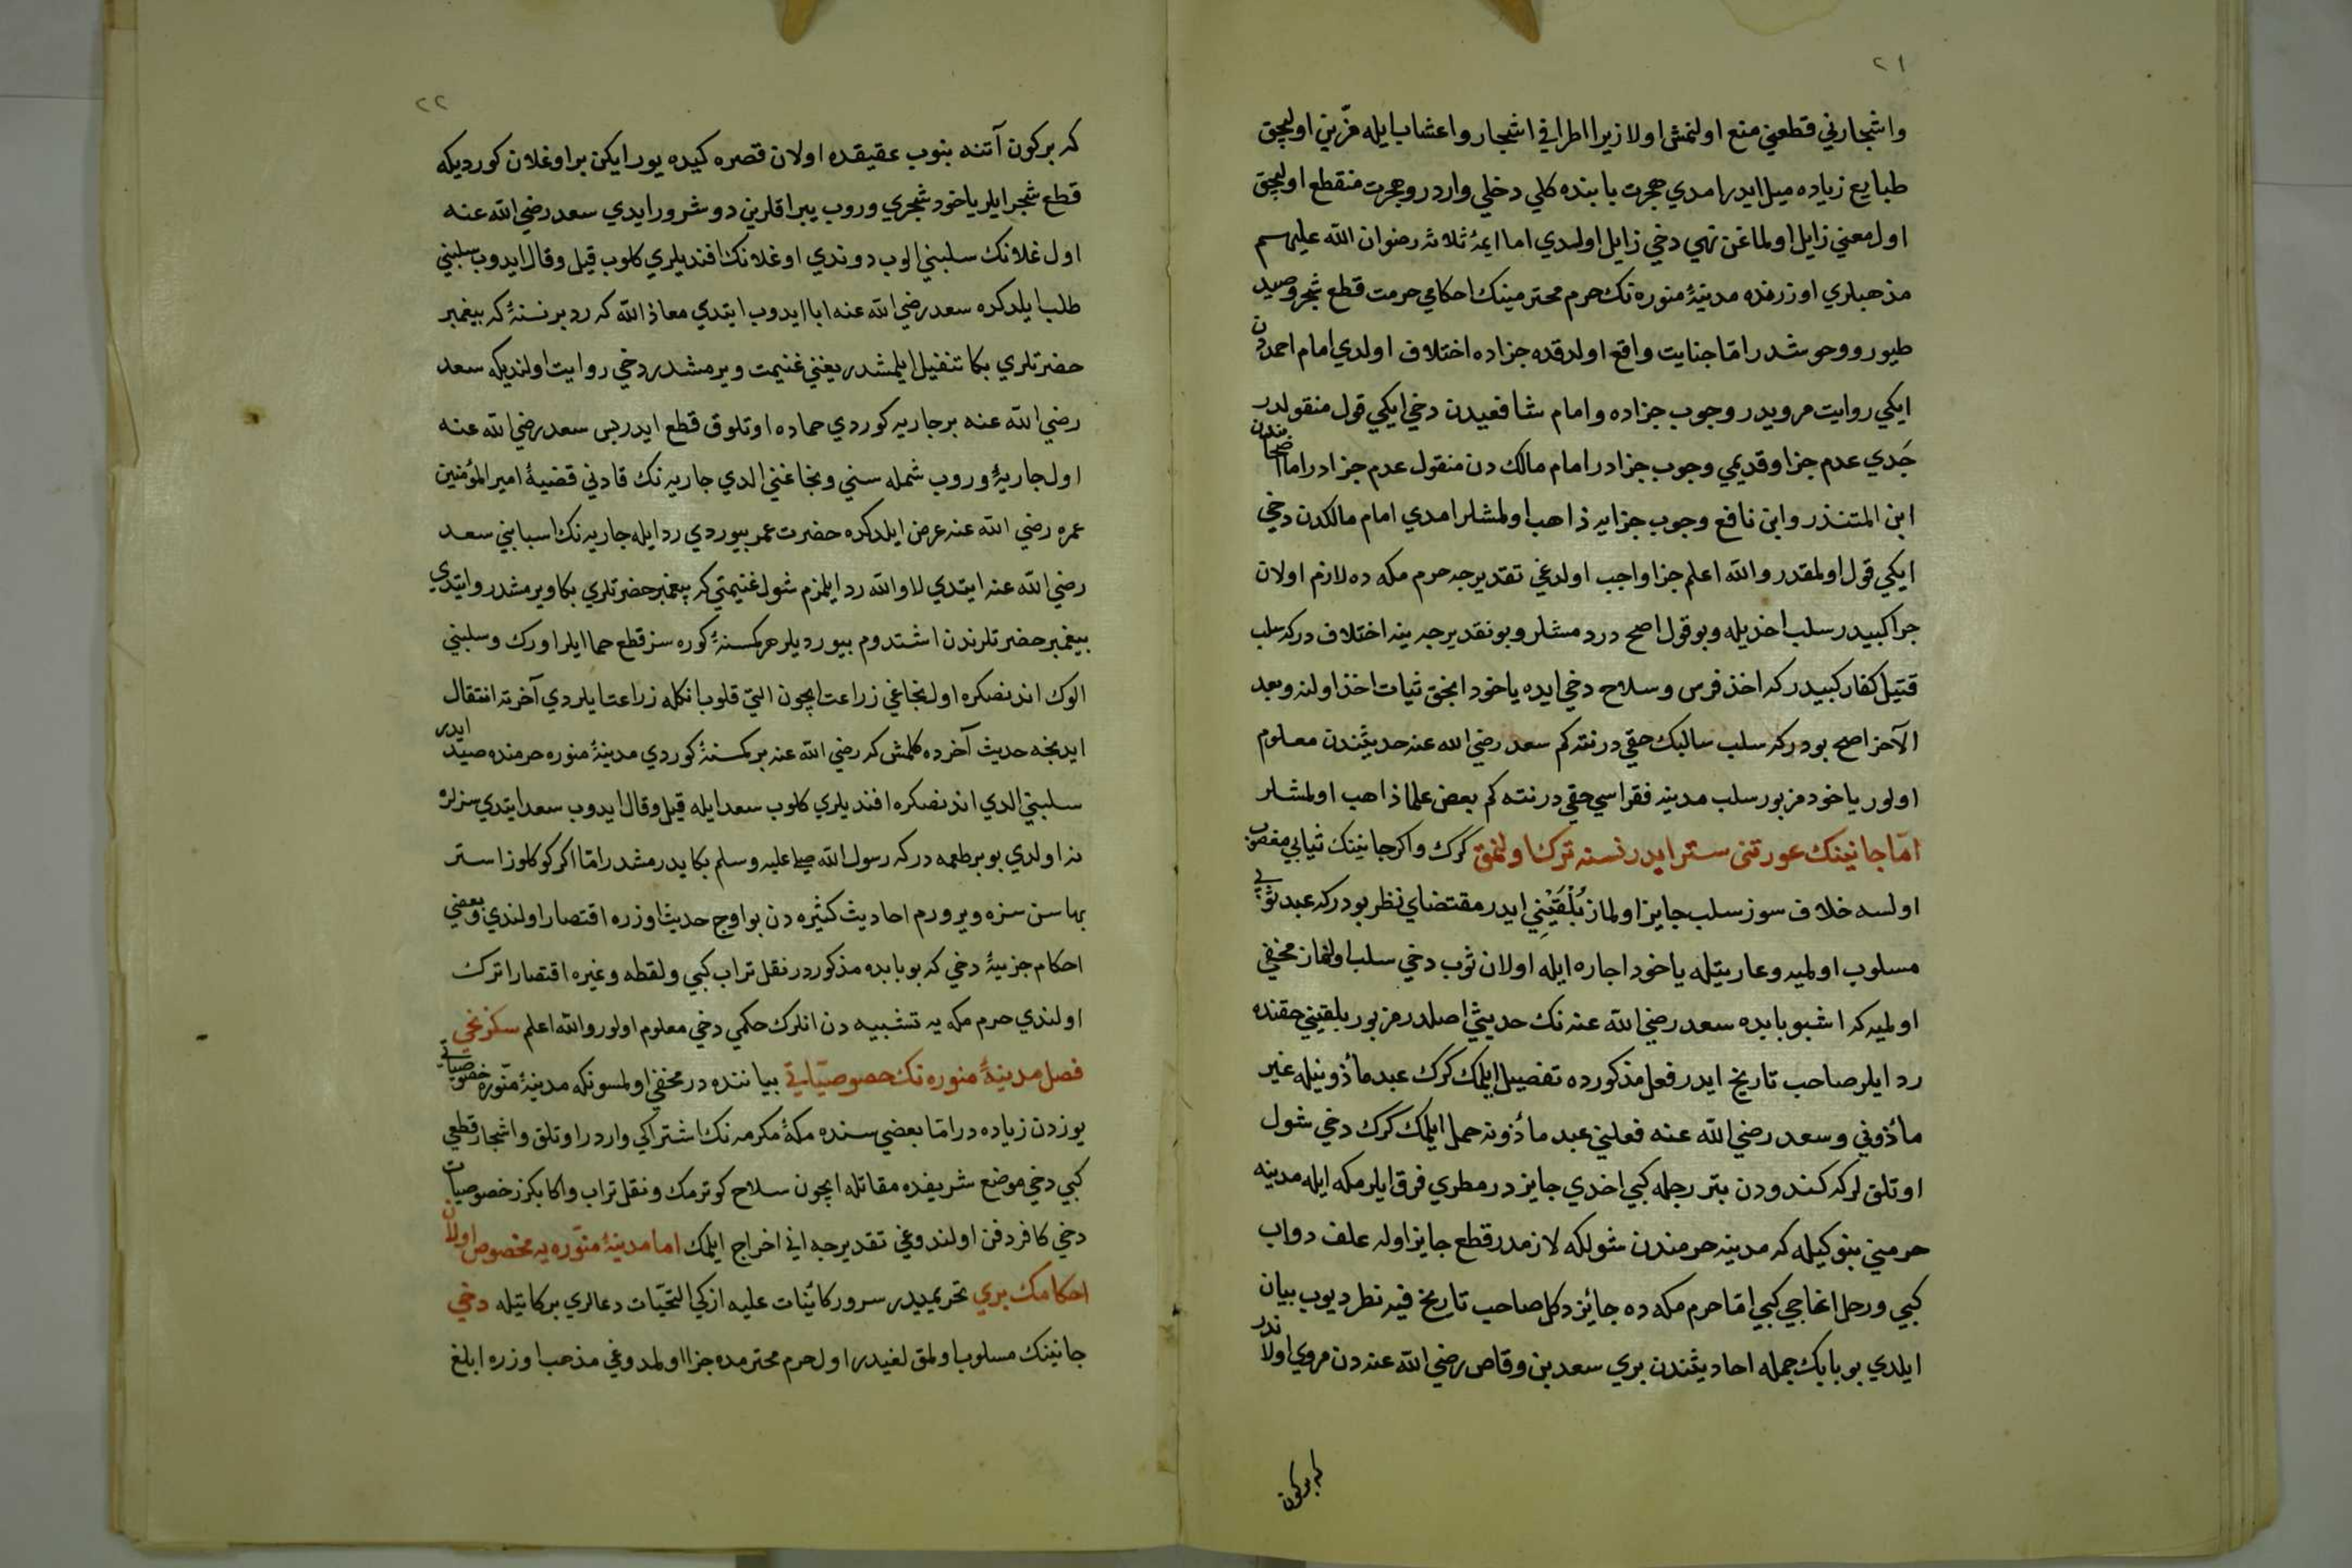 ٢١
واشجارني قطعني منع اولنمش اولا زيرا اطرافي اشجار واعشاب ايله مزين اوليجق
طبايع زياده ميل ايدر امدي هجرت بابنده كلي دخلي واردر وهجرت منقطع اوليجق
اول معني زايل اولماغن نهي دخي زايل اولدي اما ايمۀ ثلاثه رضوان الله عليهم
مذهبلري اوزرنده مدينۀ منوره نك حرم محترمينك احكامي حرمت قطع شجر وصيد
طيور ووحوشدر امّا جنايت واقع اولدقده جزاده اختلاف اولدي امام احمددن
ايكي روايت مرويدر وجوب جزاده وامام شافعيدن دخي ايكي قول منقولدر
جَدي عدم جزا وقديمي وجوب جزادر امام مالك دن منقول عدم جزادر اما اصحابندن
ابن المنذر وابن نافع وجوب جزايه ذاهب اولمشلر امدي امام مالكدن دخي
ايكي قول اولمقدر والله اعلم جزا واجب اولدغي تقديرجه حرم مكه ده لازم اولان
جزا كبيدر سلب اخذيله وبو قول اصح درد مشلر وبو تقديرجه ينه اختلاف دركه سلب
قتيل كفار كبيدر كه اخذ فرس وسلاح دخي ايده ياخود انجق ثياب اخذ اولنه وبعد
الآخر اصح بودركه سلب سالبك حقي در نته كم سعد رضي الله عنه حديثندن معلوم
اولور ياخود مزبور سلب مدينه فقراسي حقي در نته كم بعض علما ذاهب اولمشلر
امّا جانينك عورتنى ستر ايدر نسنه ترك اولنمق كرك واكر جانينك ثيابي مغصوب
اولسه خلاف سوز سلب جايز اولماز بُلْقَيْنِي ايدر مقتضاي نظر بودركه عبد ثوبي
مسلوب اولميه وعاريتله ياخود اجاره ايله اولان ثوب دخي سلب اولنماز مخفي
اولميه كه اشبو بابده سعد رضي الله عنه نك حديثي اصلدر مزبور بلقيني حقنده
رد ايلر صاحب تاريخ ايدر فعل مذكورده تفصيل ايلمك كرك عبد مأذونيله غير
مأذوني وسعد رضي الله عنه فعلني عبد مأذونه حمل ايلمك كرك دخي شول
اوتلق لركه كندودن بتر رجله كبي اخذي جايز در مطري فرق ايلر مكه ايله مدينه
حرميني بنوكيله كه مدينه حرمندن شولكه لازمدر قطع جايز اوله علف دواب
كبي ورحل اغاجي كبي امّا حرم مكه ده جائز دكل صاحب تاريخ فيه نظر ديوب بيان
ايلدي بو بابك جمله احاديثندن بري سعد بن وقاص رضي الله عنه دن مروي اولاندر
كه بركون
٢٢
كه بركون آتنه بنوب عقيقده اولان قصره كيده يورايكن بر اوغلان كورديكه
قطع شجر ايلر ياخود شجري وروب يپراقلرين دوشرور ايدي سعد رضي الله عنه
اول غلانك سلبني الوب دوندي اوغلانك افنديلري كلوب قيل وقال ايدوب سلبني
طلب ايلدكده سعد رضي الله عنه ابا ايدوب ايتدي معاذ الله كه رد بر نسنۀ كه پيغمبر
حضرتلري بكا تنفيل ايلمشدر يعني غنيمت ويرمشدر دخي روايت اولنديكه سعد
رضي الله عنه بر جاريه كوردي حماده اوتلوق قطع ايدر پس سعد رضي الله عنه
اول جاريۀ وروب شمله سني ونجاغني الدي جاريه نك قادني قضيۀ امير المؤمنين
عمره رضي الله عنه عرض ايلدكده حضرت عمر بيوردي رد ايله جاريه نك اسبابني سعد
رضي الله عنه ايتدي لا والله رد ايلمزم شول غنيمتي كه پيغمبر حضرتلري بكا ويرمشدر وايتدي
پيغمبر حضرتلرندن اشتدوم بيورديلر هر كمسنۀ كوره سز قطع حما ايلر اورك وسلبني
الوك اندنصكره اول نجاغي زراعت ايچون التى قلوب انكله زراعت ايلردي آخرته انتقال
ايدنجه حديث آخرده كلمش كه رضي الله عنه بر كمسنۀ كوردي مدينۀ منوره حرمنده صيد ايدر
سلبني الدي اندنصكره افنديلري كلوب سعد ايله قيل وقال ايدوب سعد ايتدي سزلره
نه اولدي بو بر طعمه دركه رسول الله صلى عليه وسلم بكا يدرمشدر امّا اكر كوكلوز استر
بهاسن سزه ويرورم احاديث كثيره دن بو اوج حديث اوزره اقتصار اولندي وبعضي
احكام جزيۀ دخي كه بو بابده مذكوردر نقل تراب كبي ولقطه وغيره اقتصارا ترك
اولندي حرم مكه يه تشبيه دن انلرك حكمي دخي معلوم اولور والله اعلم سكزنجي
فصل مدينۀ منوره نك خصوصيّاتي بياننده در مخفي اولمسونكه مدينۀ منّوره خصوصياتي
يوزدن زياده در امّا بعضي سنده مكۀ مكرمه نك اشتراكي واردر اوتلق واشجار قطعي
كبي دخي موضع شريفده مقاتله ايچون سلاح كوترمك ونقل تراب واكا بكزر خصوصيات
دخي كافر دفن اولندوغي تقديرجه اني اخراج ايلمك اما مدينۀ منّوره يه مخصوص اولان
احكامك بري تحريميدر سرور كائنات عليه ازكي التحيّات دعالري بركاتيله دخي
جانينك مسلوب اولمق لغيدر اول حرم محترمده جزا اولمدوغي مذهب اوزره ابلغ